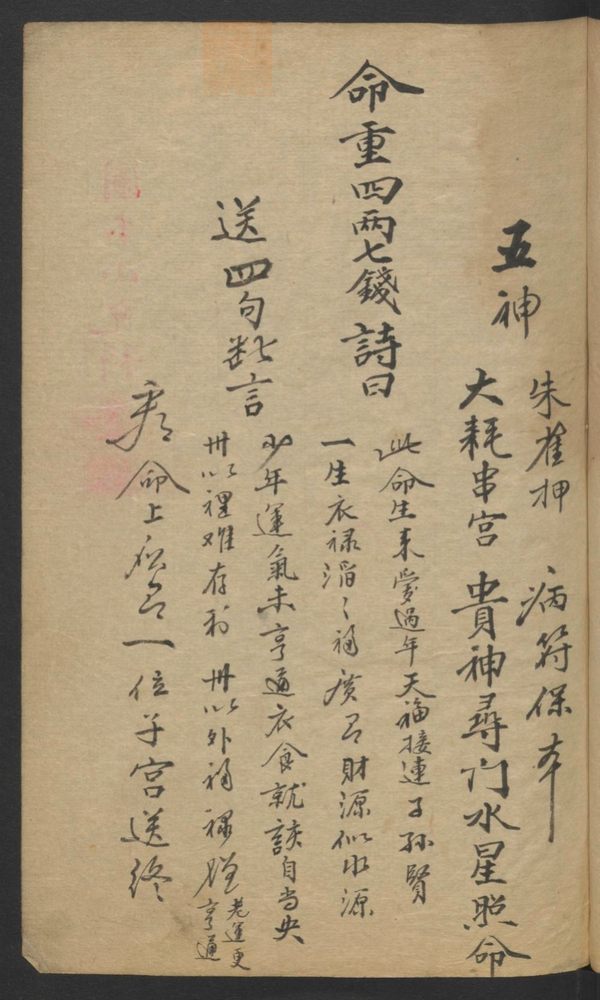 五神
朱雀押 病符保本
大耗串宫 貴神尋门水星照命
命重四两七錢詩曰
此命生来愛過年天福接連子孙賢
一生衣禄滔々福廣召財源似水源
送四句断言
少年運氣未亨通衣食就該自当央
卅以裡难存利 卅以外福禄 老运更亨通
命上 一位子宫送终